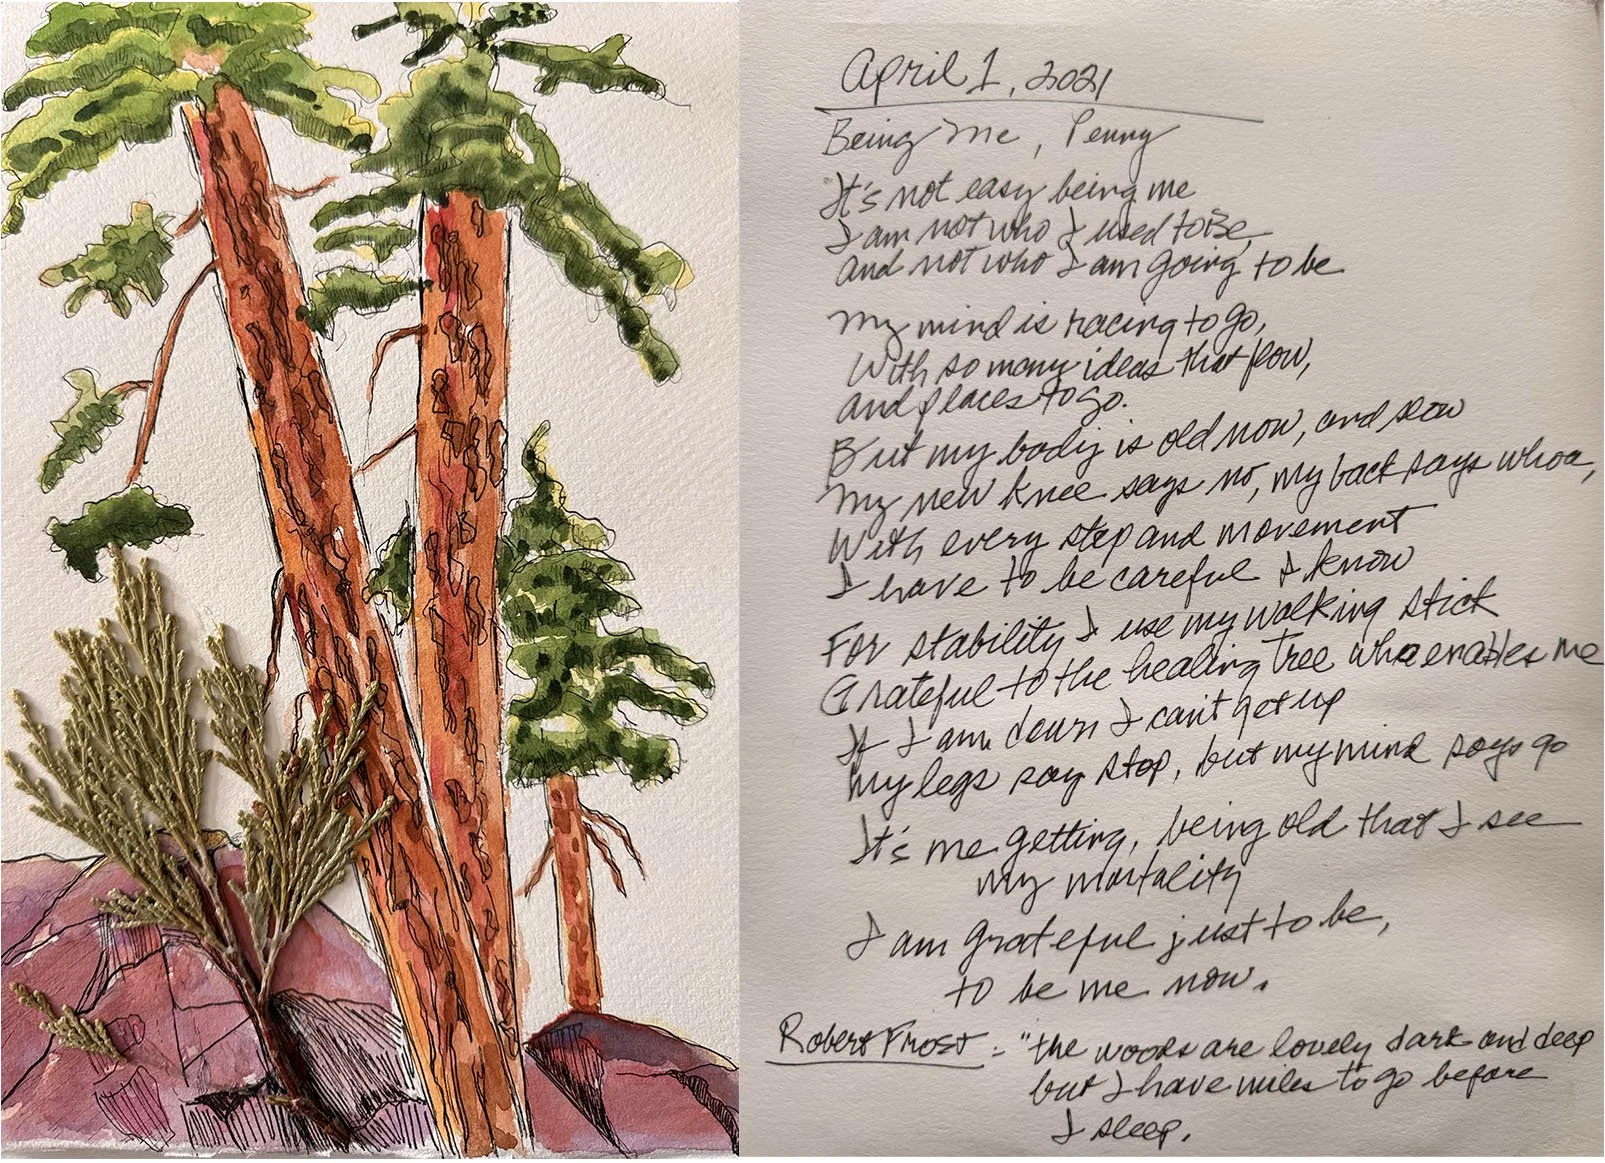 April 1, 2021
Being Me, Penny
It's not easy being me
I am not who I used to Be,
and not who I am going to be
My mind is racing to go,
With so many ideas that flow,
and places to go.
But my body is old now, and slow
My new knee says no, my back says whoa,
With every step and movement
I have to be careful I know
For stability I use my walking stick
Grateful to the healing Tree who enables me
If I am down I can't get up
My legs say stop, but my mind says go
It's me getting, being old that I see
my mortality
I am grateful just to be,
to be me now.
Robert Frost: "the woods are lovely dark and deep
but I have miles to go before
I sleep.